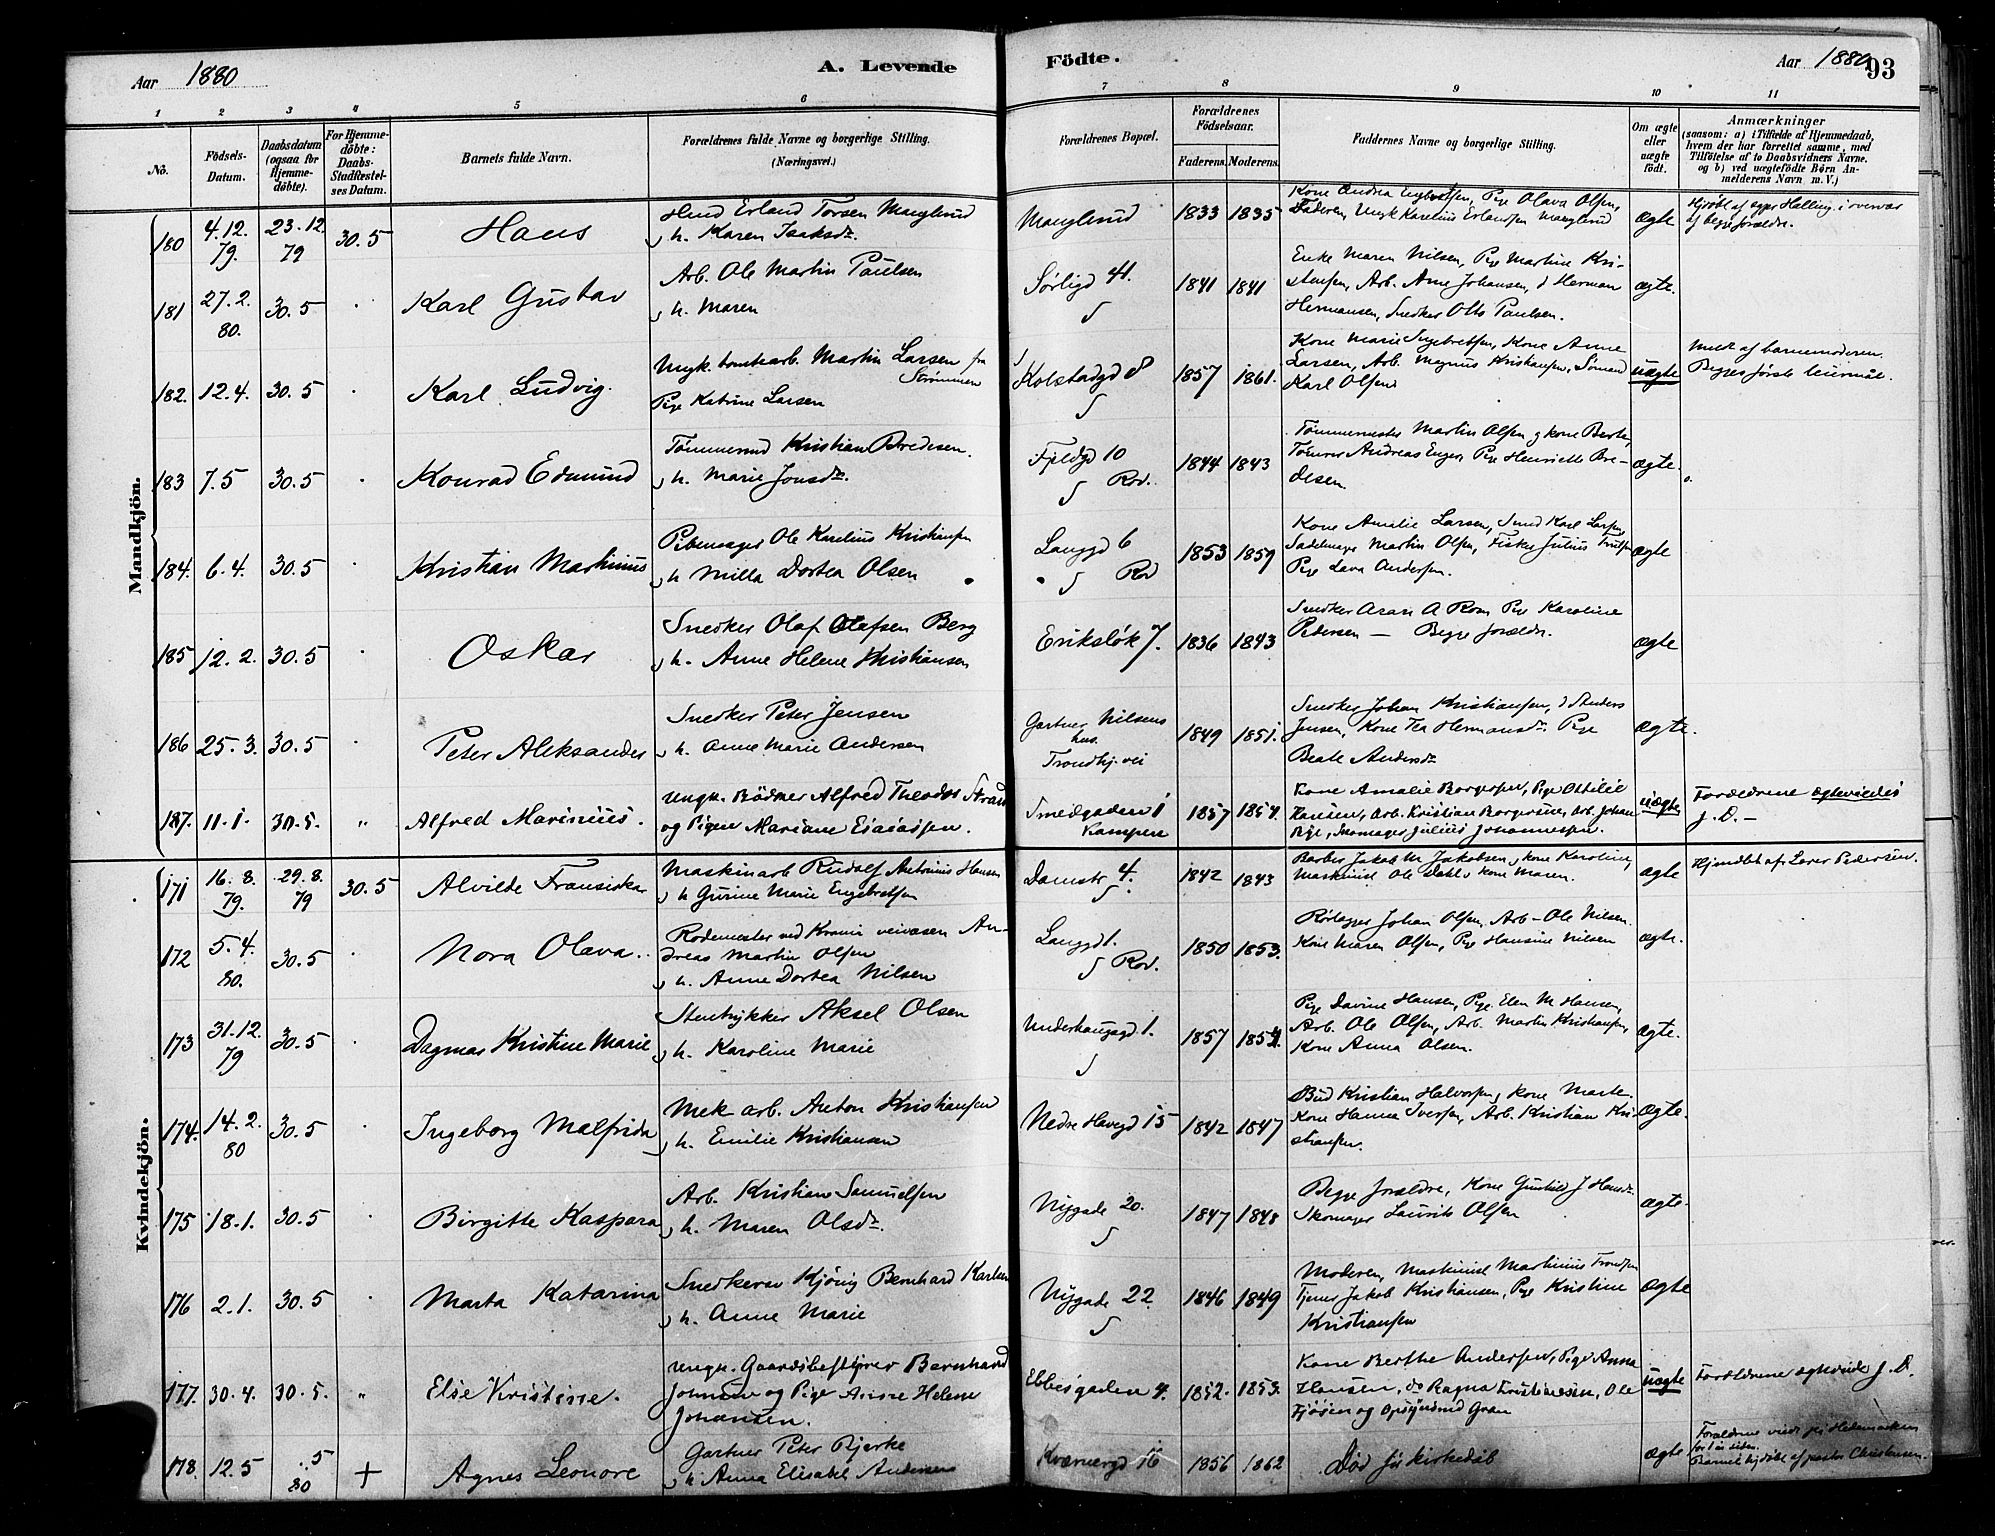 Aar 1880
A. Levende Födte.
Aar 1880 93
1 2 3 4 5 6 7 8 9 10 11
No.
Födsels-Datum.
Daabsdatum (ogsaa for Hjemme-döbte).
For Hjemme-döbte: Daabs-Stadfæstel-ses Datum.
Barnets fulde Navn.
Forældrenes fulde Navne og borgerlige Stilling. (Næringsvei.)
Forældrenes Bopæl.
Forældrenes Födselsaar.
Faderens. Moderens.
Faddernes Navne og borgerlige Stilling.
Om ægte eller uægte födt.
Anmærkninger
(saasom: a) i Tilfælde af Hjemmedaab,
hvem der har forrettet samme, med
Tilföielse af to Daabsvidners Navne.
og b) ved uægtefödte Börn An-
melderens Navn m. V.)
Mandkjön.
180 4.12.79. 23.12.79 30.5 Hans
Erland Torsen Manglerud
h. Karen Isaksdr.
Manglerud 1833 1835
Kone Andrea Engebretsen, Pige Olava Olsen,
Faderen, Ungk Karelius Erlandsen Manglerud
ægte
181 27.2.80. 30.5 Karl Gustav
Arb. Ole Martin Paulsen
h. Maren
Sørligd 41. 1841 1841
Enke Maren Nilsen, Pige Martine Kri-
stansen, Arb. Arne Johansen, Herman
Hermansen, Snedker Otto Paulsen.
ægte.
182. 12.4. 30.5 Karl Ludvig.
Martin Larsen fra Strømmen
Pige Katrine Larsen
Kolstadgd 8 1857 1861.
Kone Marie Engebretsen, Kone Anne
Larsen, Arb. Magnus Kristiansen, Sömand
Karl Olsen
uægte
Meldt af barnemoderen.
Begges første leiermål.
183 7.5 30.5 Konrad Edmund
Tømmermd Kristian Bredesen.
h. Marie Jonsdr.
Fjeldgd 10 1844 1843
Tømmermester Martin Olsen og kone Berte,
Tømrer Andreas Enger, Pige Henriette Bre-
desen.
ægte
184. 6.4. 30.5 Kristian Martinius
Pibemager Ole Karelius Kristiansen
h. Milla Dortea Olsen
Langgd 6 1853 1859
Kone Amalie Larsen, Smed Karl Larsen,
Sadelmager Martin Olsen, Fisker Julius
Pige Lava Andersen.
ægte
185 12.2. 30.5 Oskar
Snedker Olaf Olafsen Berg
h. Anne Helene Kristiansen
Eriksløk 7. 1836 1843
Pige Karoline
Pedersen — Begge forældr.
ægte
186 25.3. 30.5 Peter Aleksander
Snedker Peter Jensen
h. Anne Marie Andersen
Gartner Nilsens
hus.
Trondhj. vei
1849 1851.
Snedker Johan Kristiansen, Anders
Jensen, Kone Tea Hermansdr. Pige
Beate Andersdr
ægte.
187. 11.1. 30.5. „ Alfred Marinius.
Ungk. Bödker Alfred Theodor Strand
og Pigen Mariane Esaiassen.
Smedgaden 1
Kampen
1857 1857.
Kone Amalie Borgersen, Pige Ottilie
Hansen, Arb. Kristian Borgersen, Arb. Johan
Bye, Skomager Julius Johannesen.
uægte
Forældrene ægteviedes
J. D. —
Kvindekjön.
171 16.8.79. 29.8.79 30.5 Alvilde Fransiska
Maskinarb Rudolf Antonius Hansen
h Gurine Marie Engebretsen
Damstr 4. 1842 1843
Barber Jakob M Jakobsen, kone Karoline,
Maskinist Ole Dahl kone Maren.
ægte
172 5.4.80. 30.5 Nora Olava.
Rodemester ved Kr.ania veivæsen An-
dreas Martin Olsen
h. Anne Dortea Nilsen
Langgd 1. 1850 1853.
Rørlægger Johan Olsen, Arb. Ole Nilsen
Kone Maren Olsen, Pige Hansine Nilsen
ægte.
173 31.12.79 30.5 Dagmar Kristine Marie
Stentrykker Aksel Olsen
h. Karoline Marie
Underhaugsgd 1. 1857 1854.
Pige Davine Hansen, Pige Elen M Hansen,
Arb. Ole Olsen, Arb. Martin Kristiansen,
Kone Anna Olsen.
ægte.
174. 14.2.80 30.5 Ingeborg Malfrida
Mek arb. Anton Kristiansen
h. Emilie Kristiansen
Nedre Havegd 15 1842 1847
Bud Kristian Halvorsen, kone Marte.
Kone Hanna Iversen, Arb. Kristian Kri-
stiansen.
ægte.
175 18.1. 30.5 Birgitte Kaspara
Arb. Kristian Samuelsen
h. Maren Olsdr.
Nygade 20. 1847 1848
Begge forældre, Kone Gunhild J Hansdr.
Skomager Laurits Olsen
ægte.
176 2.1. 30.5 Marta Katarina
Snedkersv Kjönig Bernhard Karlsen
h. Anne Marie
Nygade 22 1846 1849
Moderen, Maskinist Martinius Trondsen
Tjener Jakob Kristiansen, Pige Kristine
Kristiansen
ægte
177. 30.4. 30.5. „ Else Kristine.
Ungk. Gaardsbestyrer Bernhard
Johnsen og Pige Anne Helene
Johansen.
Ebbesgaden 4. 1852. 1853.
Kone Berthe Andersen, Pige Anna
Hansen, do Ragna Kristiansen, Ole
Fjøsen og Opsynsmd Gran
uægte
Forældrene ægteviede J. D.
178. 12.5 .5 80 + Agnes Leonore
Gartner Peter Bjerke
h. Anna Elisabet Andersen
Kværnergd 16 1856 1862
Død før kirkedåb
ægte
Forældrene viede på Hedemarken
for 1 år siden.
Barnet hjdöbt af pastor Christensen.